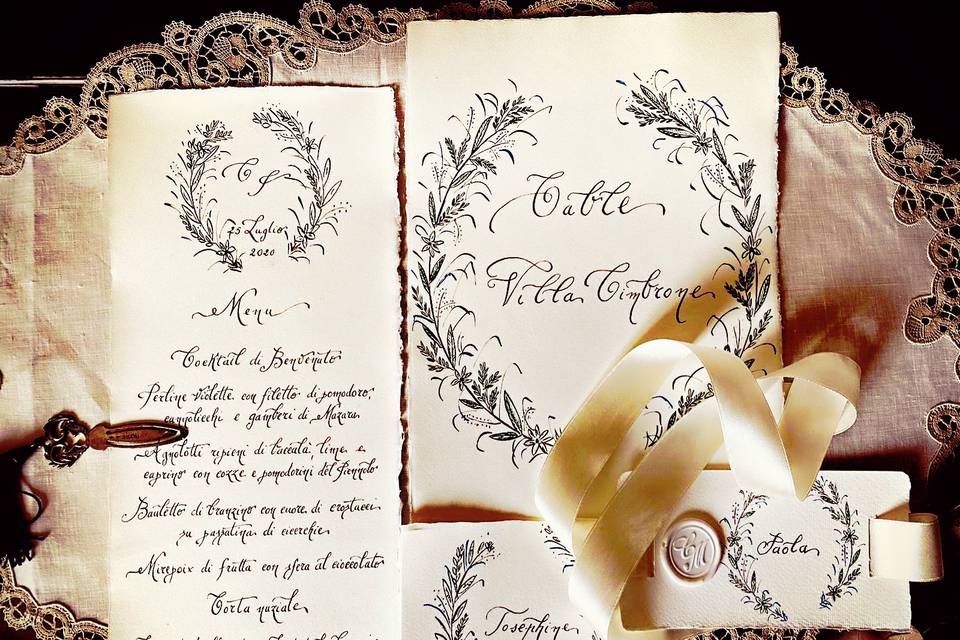 C S
25 Luglio
2020
Menu
Cocktail di Benvenuto
Perline violette con filetto di pomodoro,
cannolicchi e gamberi di Mazara
Agnolotti ripieni di burrata, lime e
caprino con cozze e pomodorini del Piennolo
Bauletto di branzino con cuore di crostacei
su passatina di cicerchie
Mirepoix di frutta con sfera al cioccolato
Torta nuziale
Table
Villa Cimbrone
Paola
Josephine